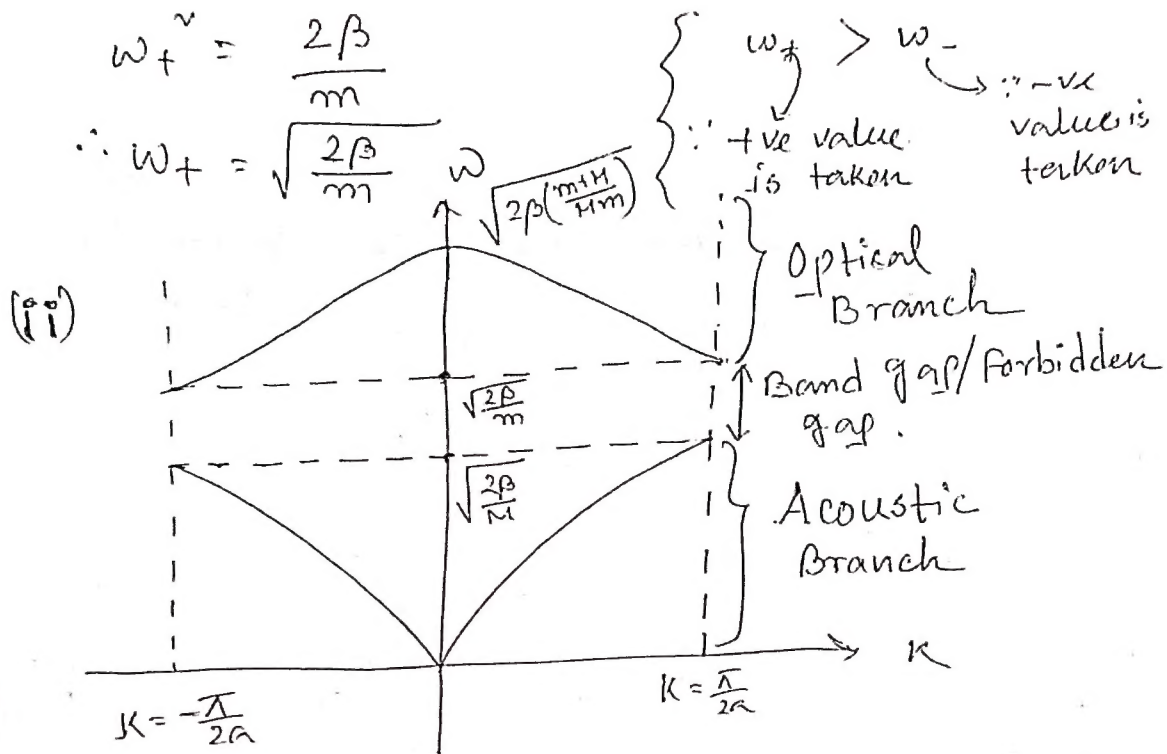 ω₊² = 2β/m
∴ ω₊ = √(2β/m)
ω₊ > ω₋
∵ +ve value is taken
∵ -ve value is taken
ω
√(2β((m+M)/Mm))
(ii)
Optical Branch
√(2β/m)
Band gap/Forbidden gap.
√(2β/M)
Acoustic Branch
K
K = -π/2a
K = π/2a